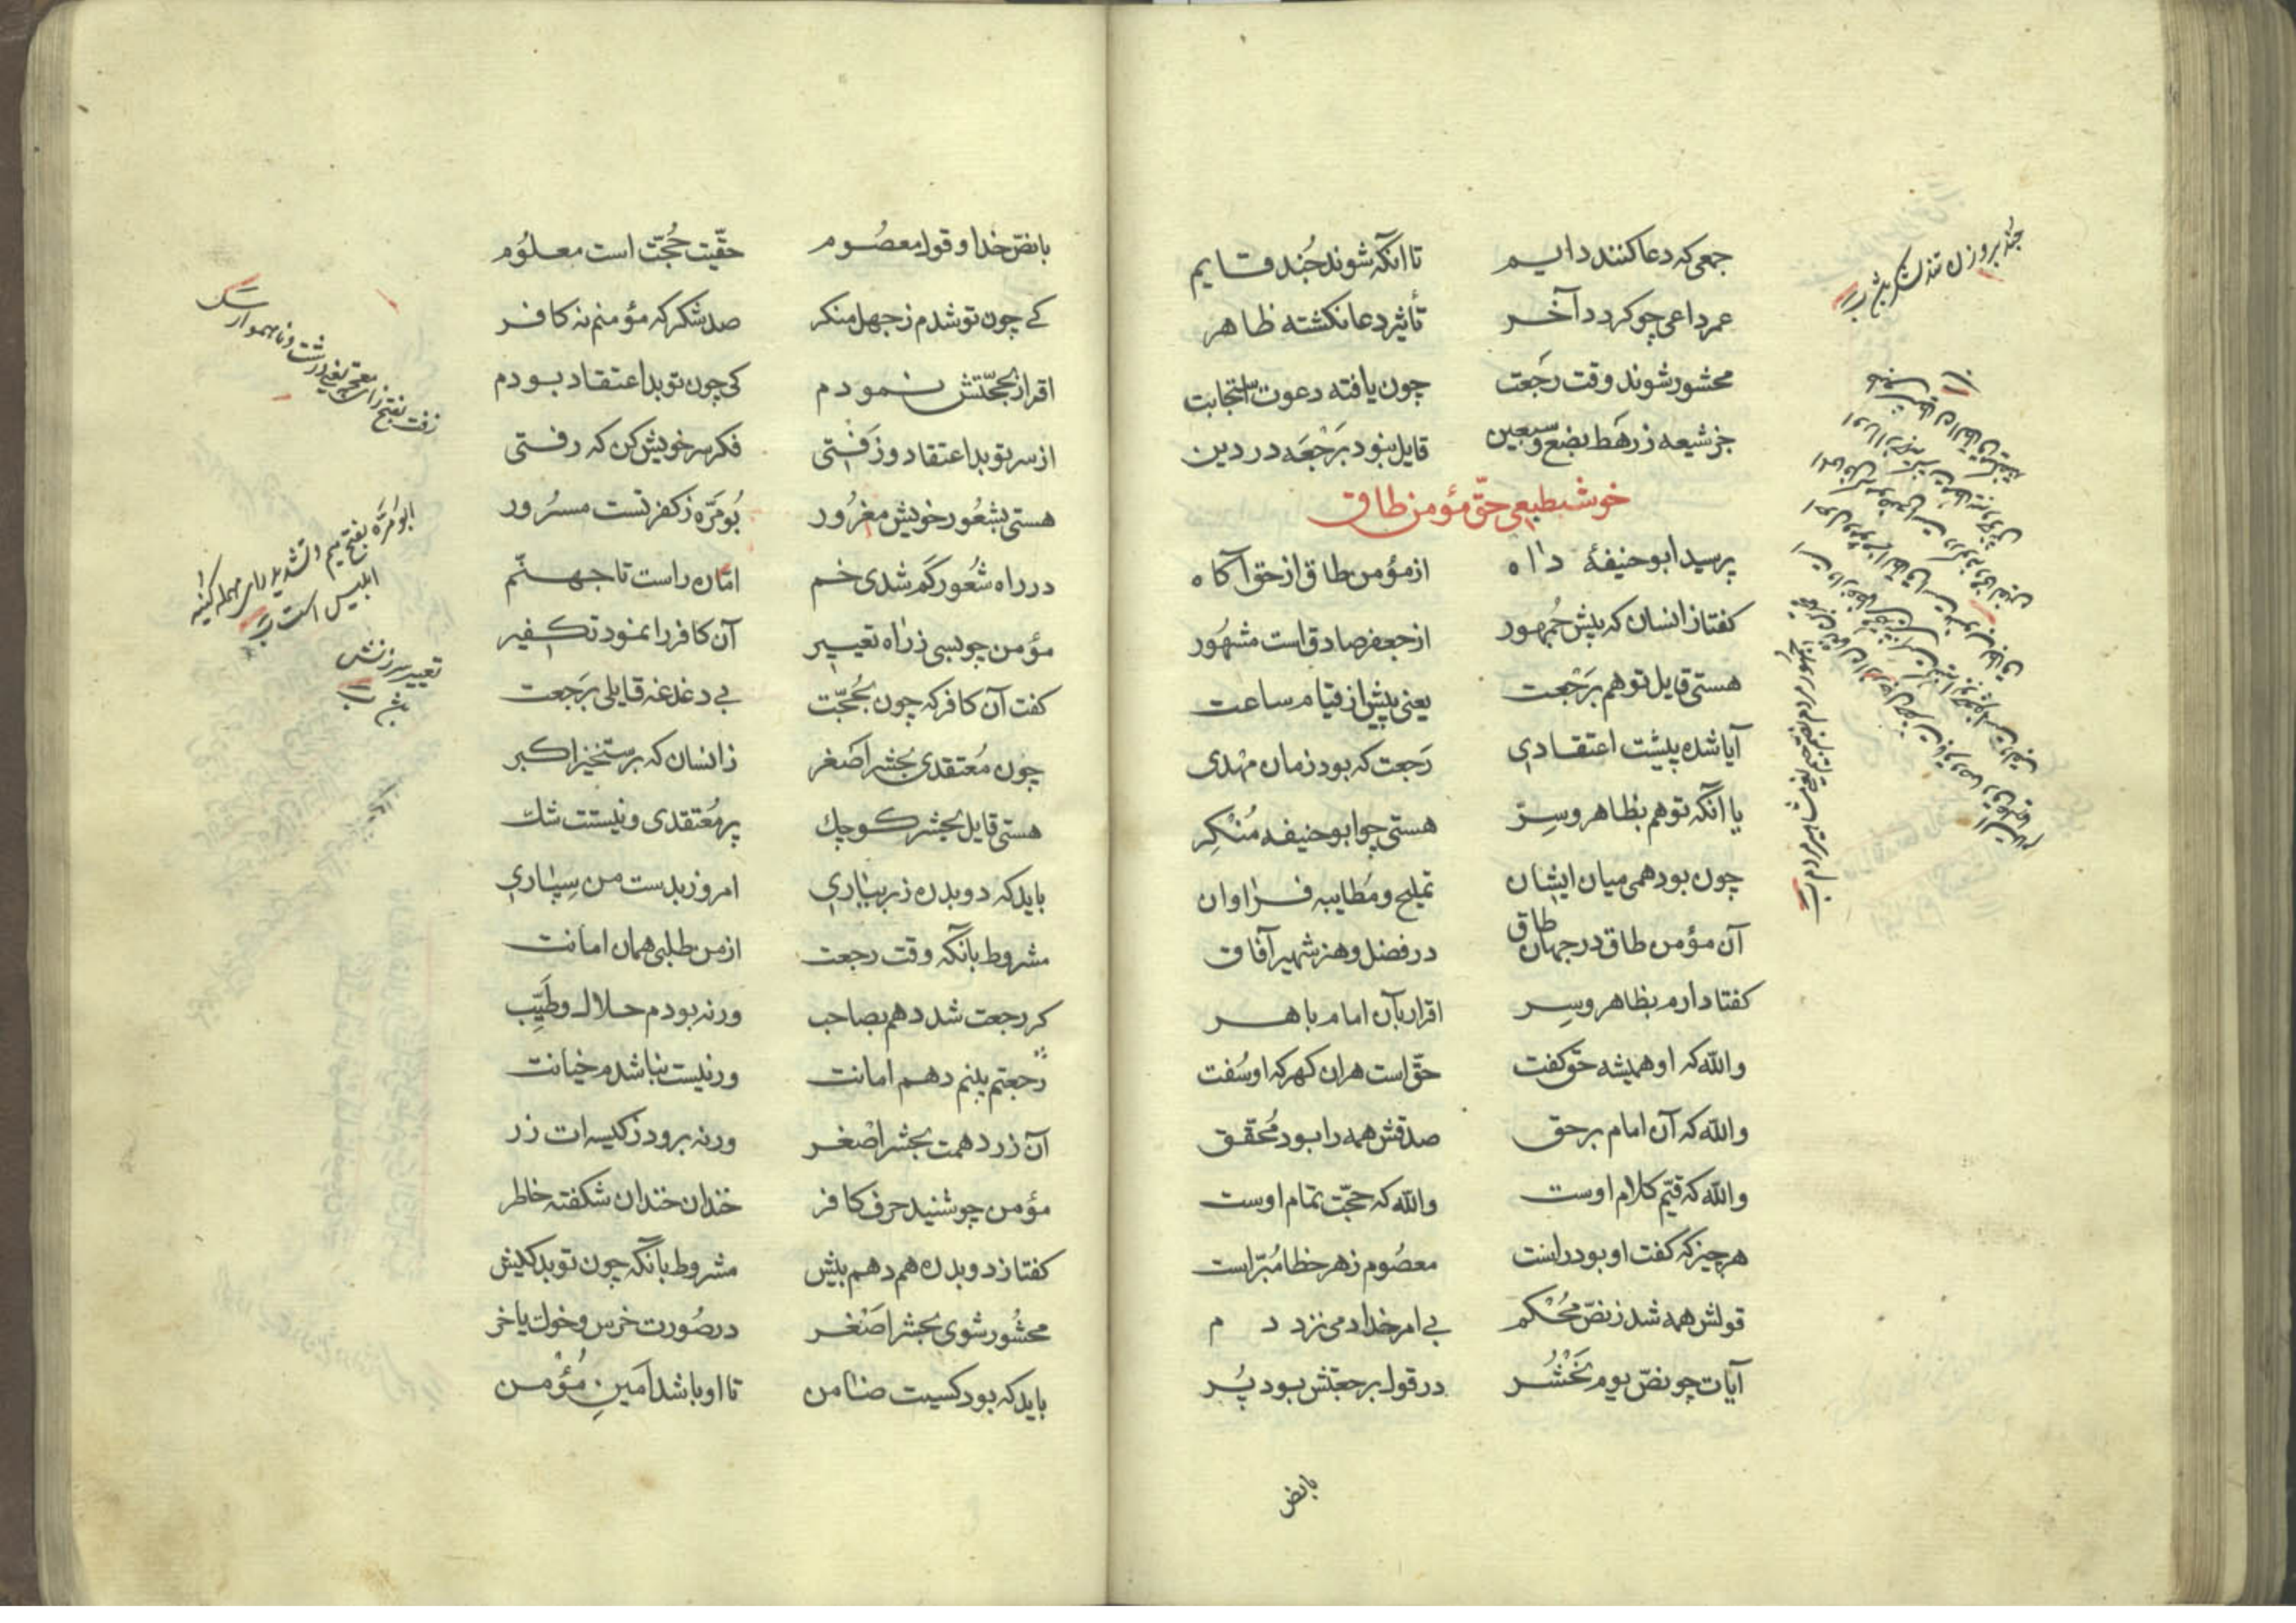 جمعی که دعا کنند دایم تا آنکه شوند جُند قایم
عمر داعی چو کرد د آخر تأثیر دعا نکشته ظاهر
محشور شوند وقت رَجعت چون یافته دعوت استجابت
جز شیعه ز رهط بضع و سبعین قایل نبود برَجْعَه در دین
خوش طبعی حقّ مؤمن طاق
پرسید ابو حنیفهٔ داه از مؤمن طاق از حق آکاه
کفتا زانسان که پیش جُمهور از جعفر صادق است مشهُور
هستی قایل تو هم برَجْعت یعنی پیش از قیام ساعت
آیا شده پیشت اعتقادی رَجعت که بود زمان مهْدی
یا آنکه تو هم بظاهر وسِرّ هستی چو ابو حنیفه مُنْکِر
چون بود همی میان ایشان تملیح و مَطایبه فراوان
آن مؤمن طاق در جهان طاق در فضل و هنر شهیر آفاق
کفتا دارم بظاهر وسِر اقرار بآن امام باهر
والله که او همیشه حق کفت حقّ است هران کهر که او سُفت
والله که آن امام بر حق صدقش همه را بود مُحقق
والله که قیّم کلام اوست والله که حجّت تمام اوست
هر چیز که کفت او بود راست معصُوم ز هر خطا مُبرّاست
قولش همه شد ز نصّ مُحْکم بی امر خدا دمی نزد دم
آیات چو نصّ یوم نَحْشُر در قول برجعتش بود پُر
بانص
جُند بر وزن تند لشکر باشد
جمهور مردم بضم جیم یعنی مشاهیر مردم
با نصّ خدا و قول معصُوم حقّیت حُجّت است معلوُم
کے چون تو شدم ز جهل منکر صد شکر که مؤمنم نه کافر
اقرار بحجّتش نمودم کی چون تو بد اعتقاد بودم
از سر تو بد اعتقاد و زَفْتی فکر سر خویش کن که رفتی
هستی بشعُور خویش مغرُور بُومَرَّه ز کفر تست مسرُور
در راه شعُور کم شدی خم امّا ره راست تا جهنّم
مؤمن چو بسی ز راه تعییر آن کافر را نمود تکفیر
کفت آن کافر که چون بحُجّت بے دغدغه قایلی برَجعت
چون مُعتقدی بحشر اصَغر زانسان که برستخیز اکبر
هستی قایل بحشر کوچك پر مُعتقدی و نیستت شك
باید که دو بدره زر بیاری امروز بدست من سپاری
مشروط بانکه وقت رجعت از من طلبی همان امانت
کر رجعت شد دهم بصاحب ورنه بودم حلال و طَیِّب
رجعتم بینم دهم امانت ور نیست نباشدم خیانت
آن زر دهمت بحشر اصْغر ورنه برود ز کیسه ات زر
مؤمن چو شنید حرف کافر خندان خندان شکفته خاطر
کفتا ز دو بدره هم دهم بیش مشروط بانکه چون تو بد کیش
محشُور شوی بحشر اصَغر در صُورت خرس و خوك یا خر
باید که بود کسیت ضامن تا او باشد اَمینِ مُؤْمن
ابو مُرَّه بفتح میم و تشدید رای مهمله کنیه
ابلیس است
تعییر سرزنش
باشد